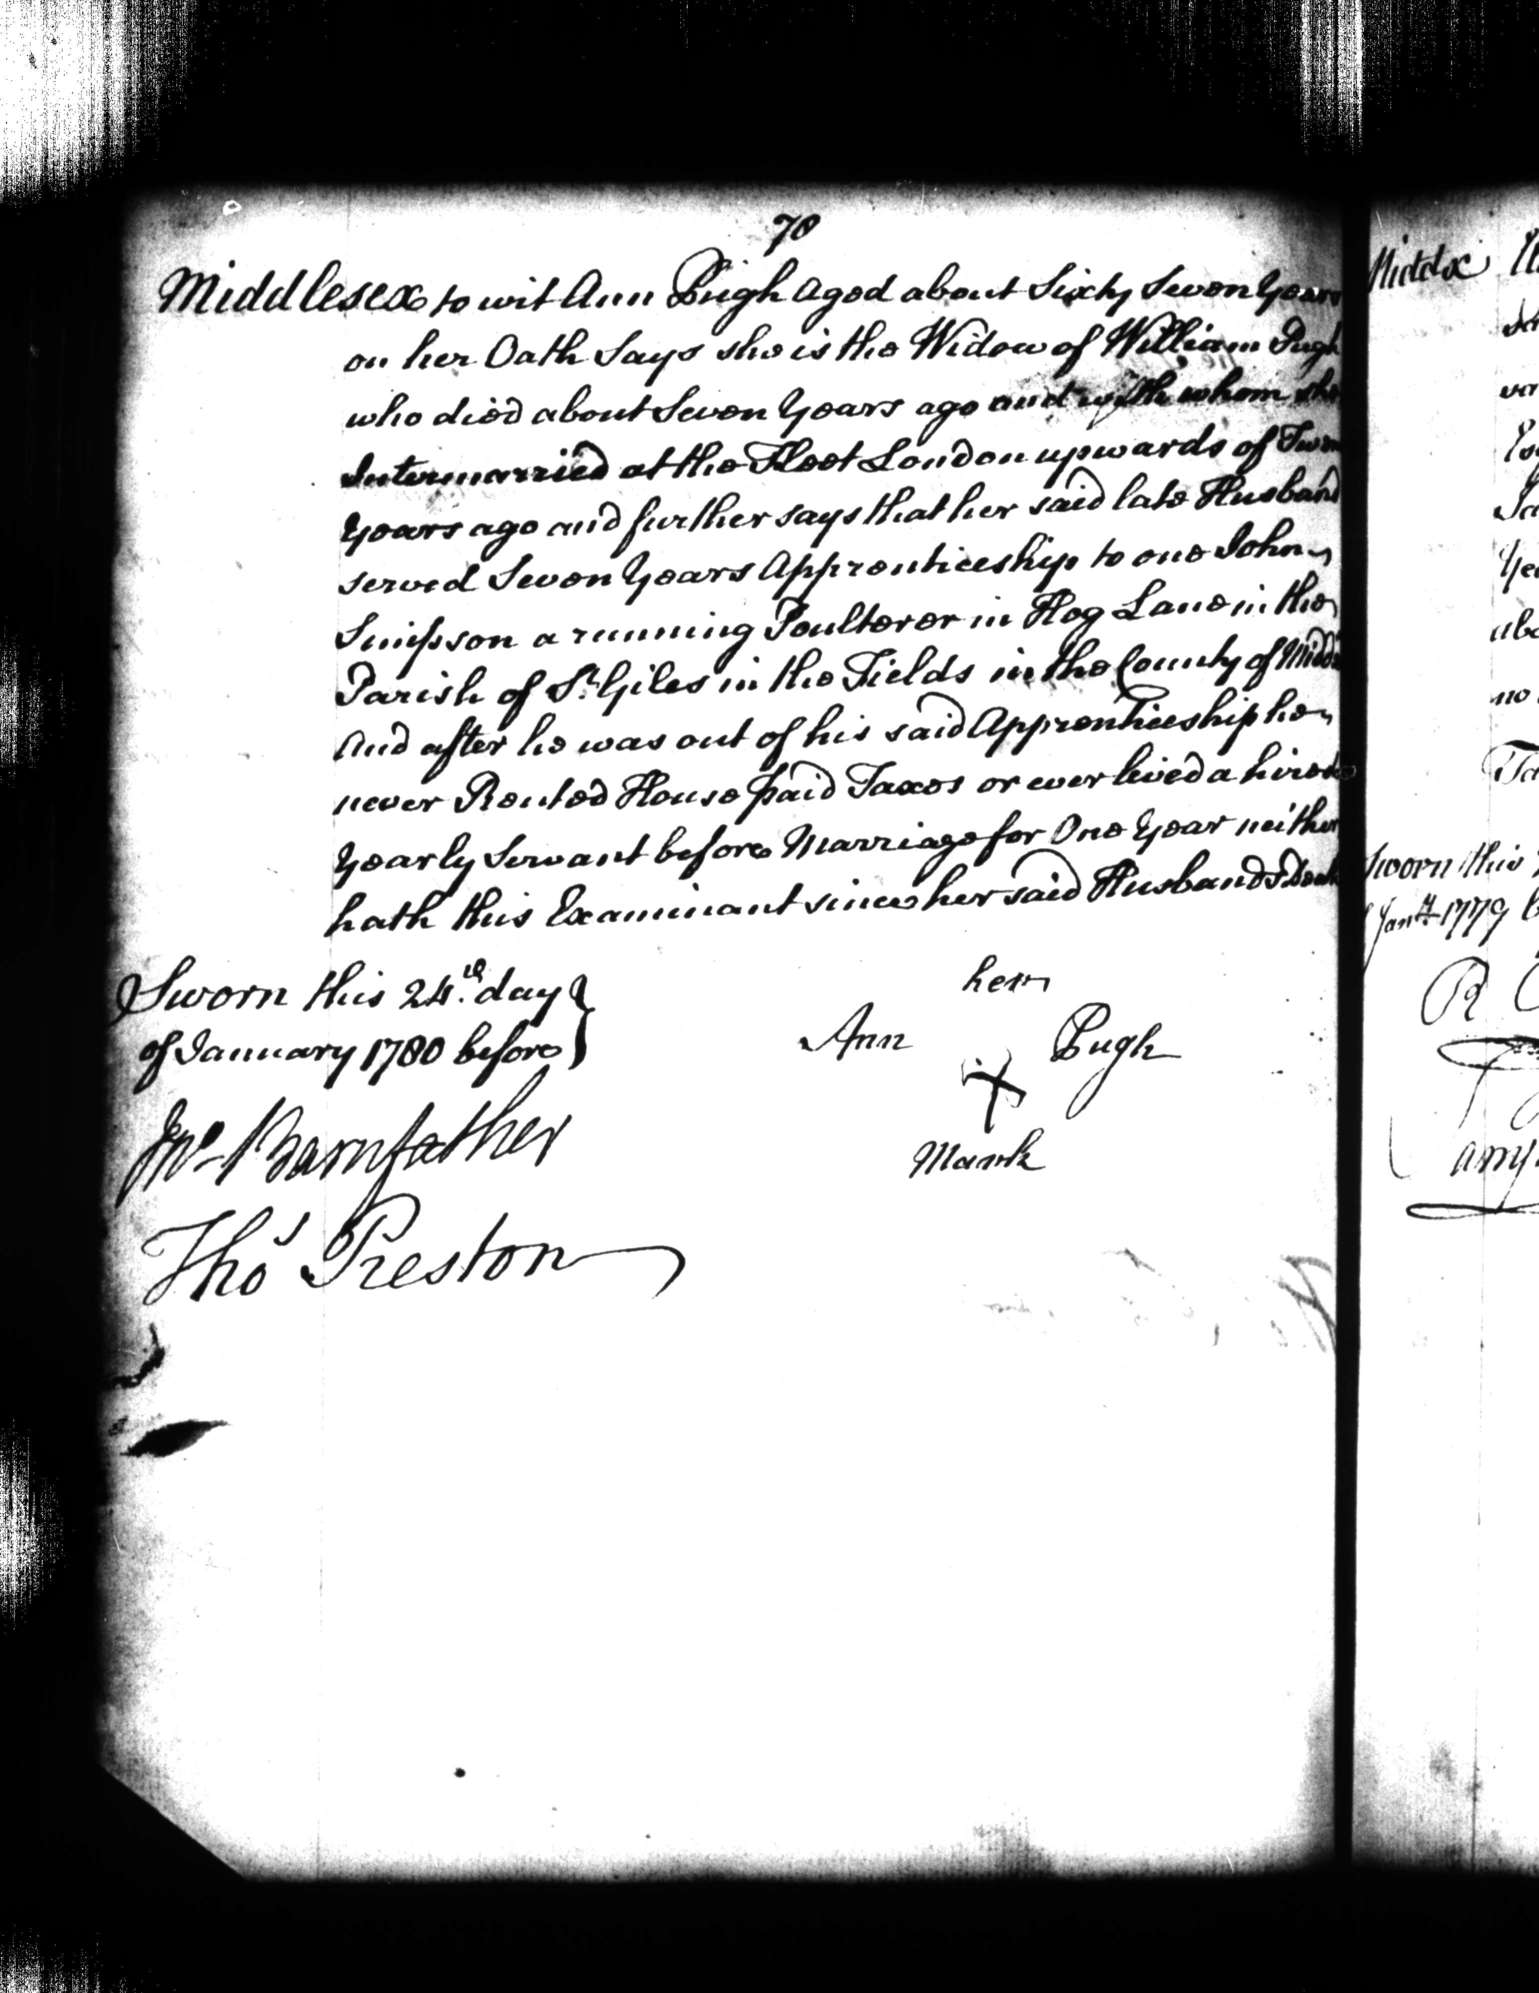 70
Middlesex to wit Ann Pugh Aged about Sixty Seven Years
on her Oath Says she is the Widow of William Pugh
who died about Seven Years ago and with whom she
Intermarried at the Fleet London upwards of
Years ago and further says that her said late Husband
served Seven Years Apprenticeship to one John
Simpson a running Poulterer in Hog Lane in the
Parish of St. Giles in the Fields in the County of Middx
And after he was out of his said Apprenticeship he
never Rented House paid Taxes or ever lived a hired
Yearly Servant before Marriage for One Year neither
hath this Examinant since her said Husbands Death
Sworn this 24th day
of January 1780 before
her
Ann Pugh
X
Mark
Jno Barnfather
Thos Preston
Middx
Sworn this
Jany 1779
R